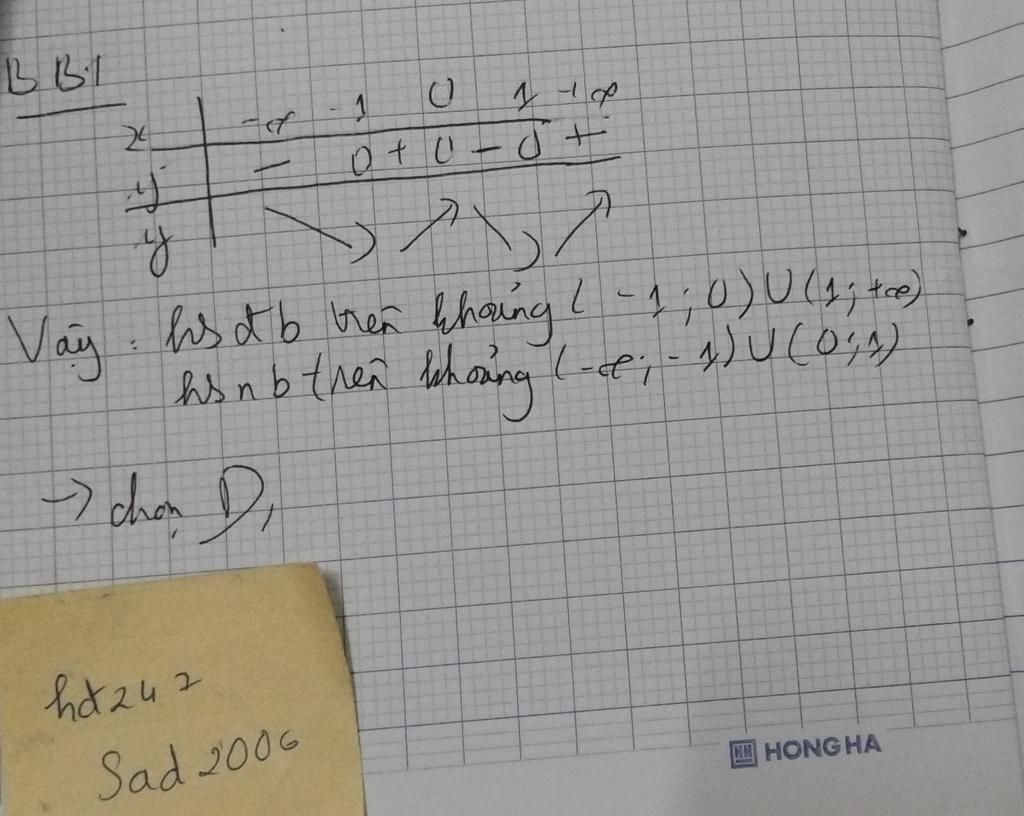 BBT
x -∞ -1 0 1 +∞
y' - 0 + 0 - 0 +
y
Vậy: hs đb trên khoảng (-1; 0) U (1; +∞)
hs nb trên khoảng (-∞; -1) U (0; 1)
→ chọn D,
hd242
Sad2006
HONG HA